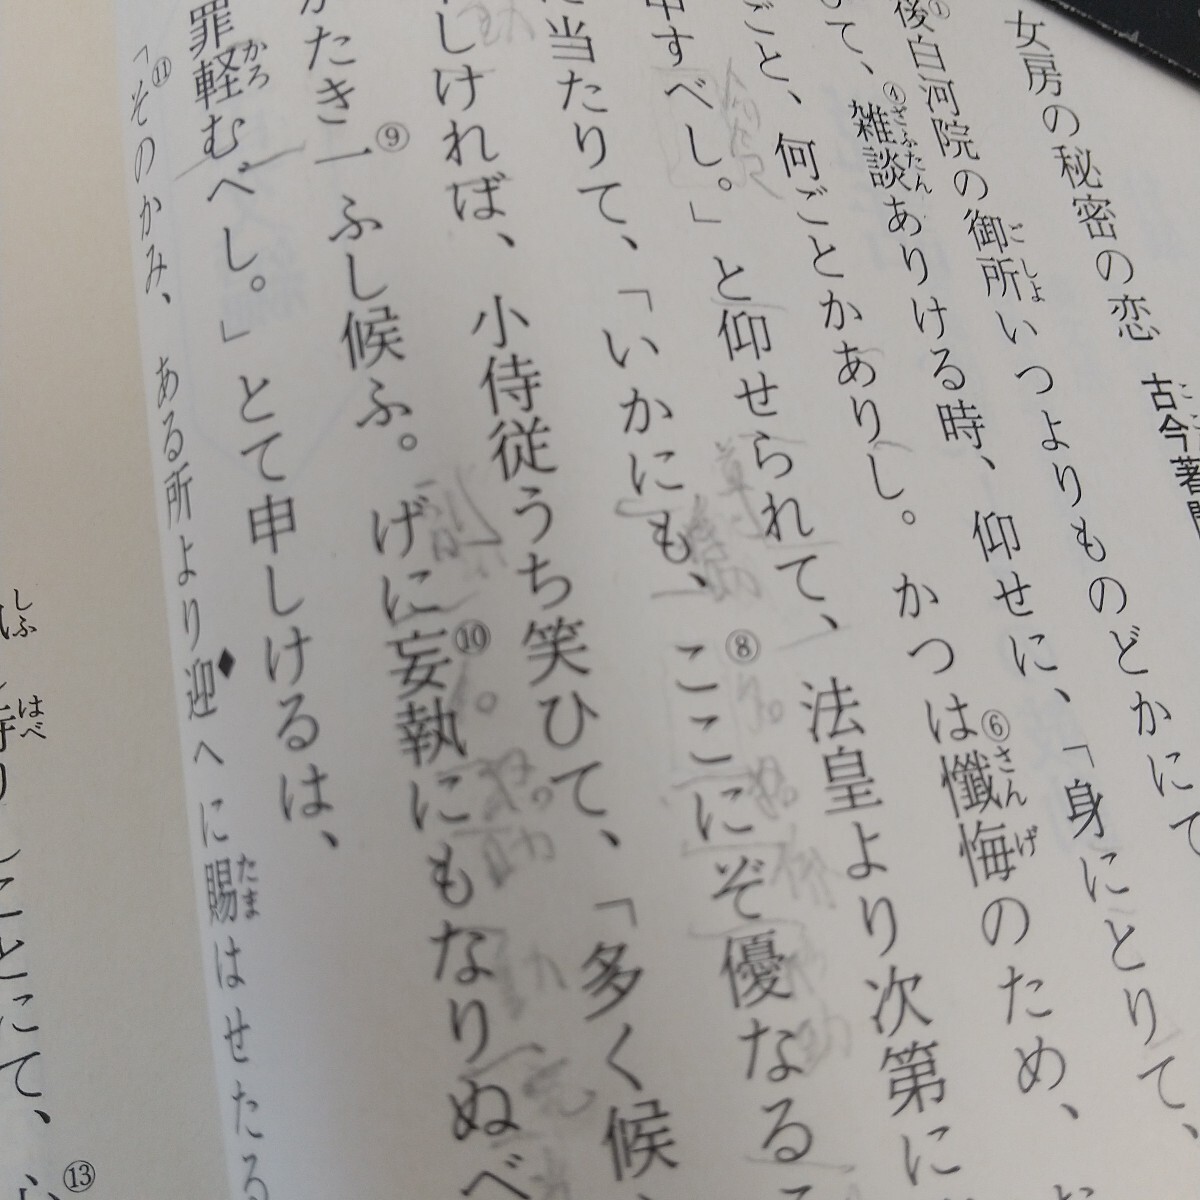 古今著
女房の秘密の恋
後白河院の御所いつよりものどかにて
て、雑談ありける時、仰せに、「身にとりて、
ごと、何ごとかありし。かつは懺悔のため、
申すべし。」と仰せられて、法皇より次第に
に当たりて、「いかにも、ここにぞ優なる
しければ、小侍従うち笑ひて、「多く候
がたき一ふし候ふ。げに妄執にもなりぬべ
罪軽むべし。」とて申しけるは、
「そのかみ、ある所より迎へに賜はせたる
ことにて、